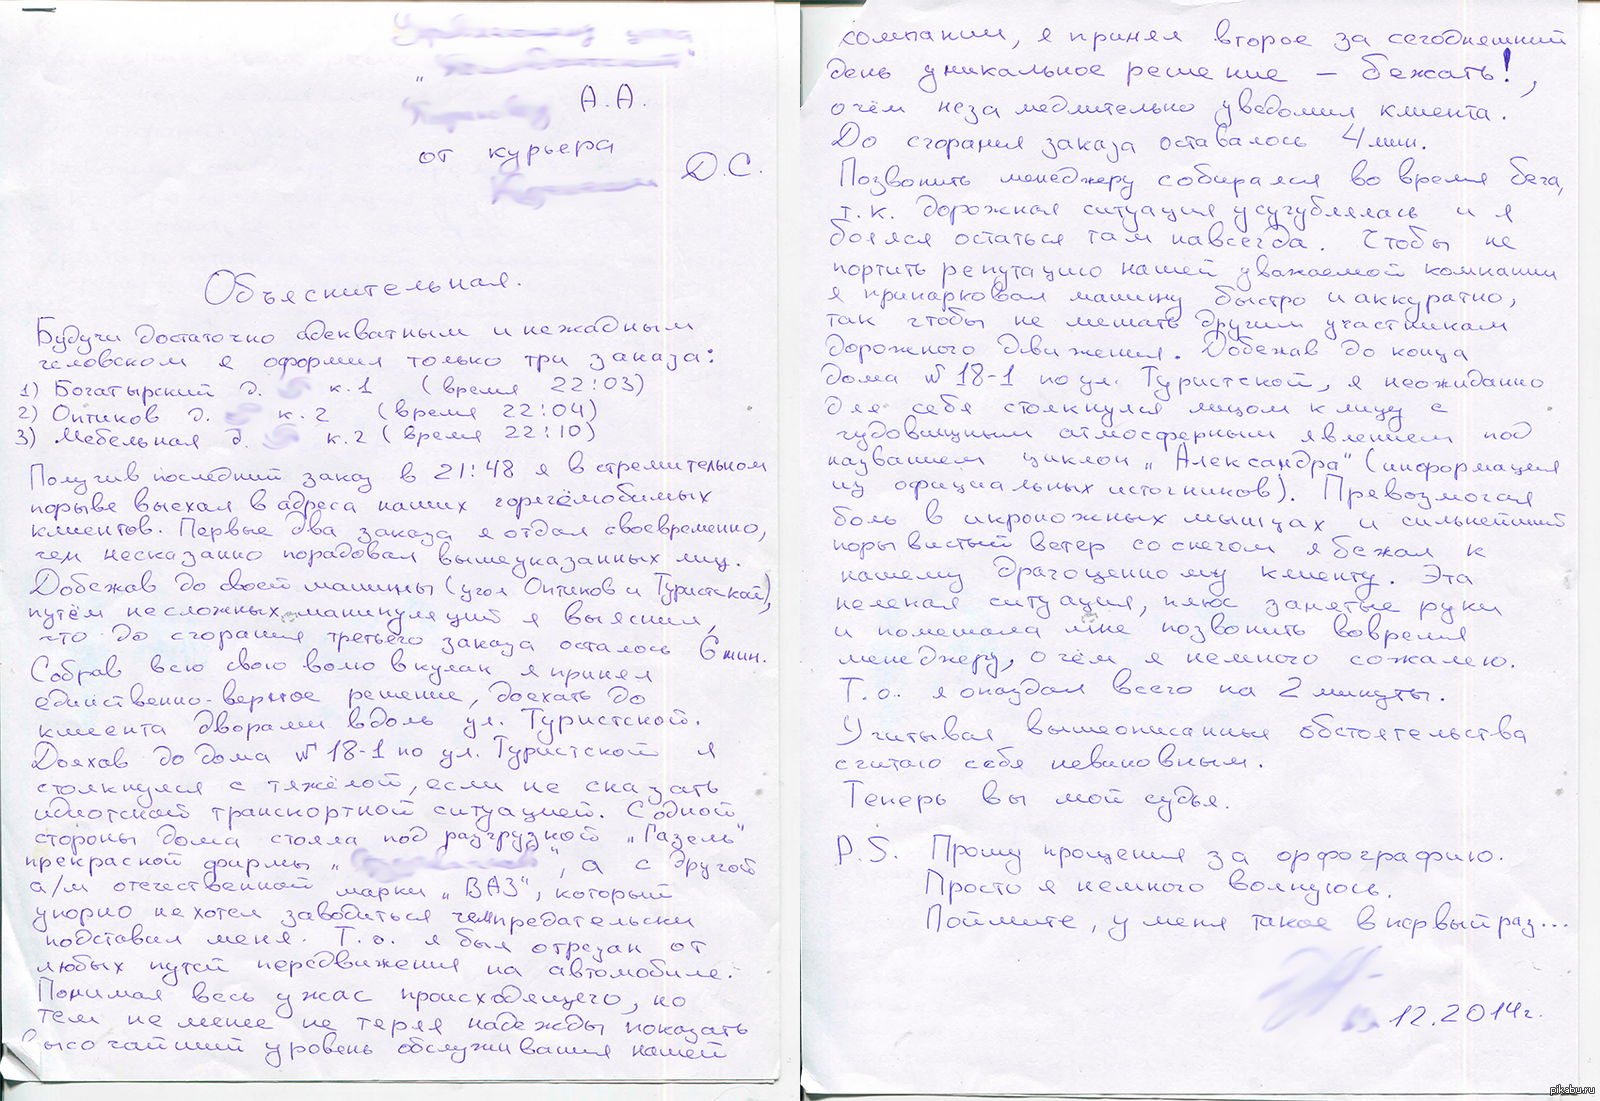 "
А.А.
от курьера
Д.С.
Объяснительная.
Будучи достаточно адекватным и нежадным
человеком я оформил только три заказа:
1) Богатырский д. к.1 (время 22:03)
2) Оптиков д. к.2 (время 22:04)
3) Мебельная д. к.2 (время 22:10)
Получив последний заказ в 21:48 я в стремительном
порыве выехал в адреса наших горячёмобимых
клиентов. Первые два заказа я отдал своевременно,
чем несказанно порадовал вышеуказанных лиц.
Добежав до своей машины (угол Оптиков и Туристской),
путём несложных манипуляций я выяснил,
что до сгорания третьего заказа осталось 6 мин.
Собрав всю свою волю в кулак я принял
единственно-верное решение, доехать до
клиента дворами вдоль ул. Туристской.
Доехав до дома №18-1 по ул. Туристской я
столкнулся с тяжёлой, если не сказать
идиотской транспортной ситуацией. С одной
стороны дома стояла под разгрузкой „Газель"
прекрасной фирмы „ ", а с другой
а/м отечественной марки „ВАЗ", который
упорно не хотел заводиться чем предательски
подставил меня. Т.о. я был отрезан от
любых путей передвижения на автомобиле.
Понимая весь ужас происходящего, но
тем не менее не теряя надежды показать
высочайший уровень обслуживания нашей
компании, я принял второе за сегодняшний
день уникальное решение – бежать!,
о чём незамедлительно уведомил клиента.
До сгорания заказа оставалось 4 мин.
Позвонить менеджеру собирался во время бега,
т.к. дорожная ситуация усугублялась и я
боялся остаться там навсегда. Чтобы не
портить репутацию нашей уважаемой компании
я припарковал машину быстро и аккуратно,
так чтобы не мешать другим участникам
дорожного движения. Добежав до конца
дома №18-1 по ул. Туристской, я неожиданно
для себя столкнулся лицом к лицу с
чудовищным атмосферным явлением под
названием циклон „Александра" (информация
из официальных источников). Превозмогая
боль в икроножных мышцах и сильнейший
порывистый ветер со снегом я бежал к
нашему драгоценному клиенту. Эта
нелепая ситуация, плюс занятые руки
и помешала мне позвонить вовремя
менеджеру, о чём я немного сожалею.
Т.о. я опоздал всего на 2 минуты.
Учитывая вышеописанные обстоятельства
считаю себя невиновным.
Теперь вы мой судья.
P.S. Прошу прощения за орфографию.
Просто я немного волнуюсь.
Поймите, у меня такое в первый раз...
12.2014г.
pikabu.ru